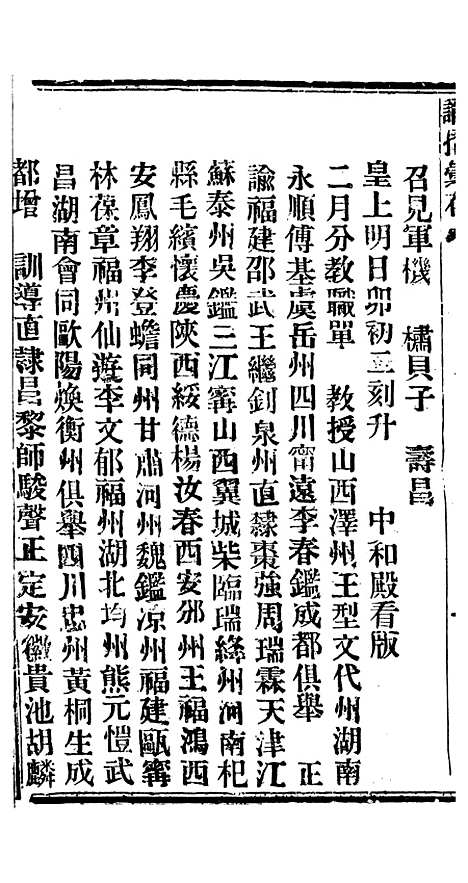 諭摺彙存
召見軍機　橚貝子　壽昌
皇上明日卯初二刻升　中和殿看版
二月分教職單　教授山西澤州王型文代州湖南
永順傅基虞岳州四川甯遠李春鑑成都俱舉　正
諭福建邵武王繼釗泉州直隸棗強周瑞霖天津江
蘇泰州吳鑑三江甯山西翼城柴臨瑞絳州河南杞
縣毛繽懷慶陝西綏德楊汝春西安邠州王福鴻西
安鳳翔李登蟾同州甘肅河州魏鑑涼州福建甌甯
林葆章福州仙遊李文郁福州湖北均州熊元愷武
昌湖南會同歐陽煥衡州俱舉四川忠州黃桐生成
都增　訓導直隸昌黎師駿聲正定安徽貴池胡麟